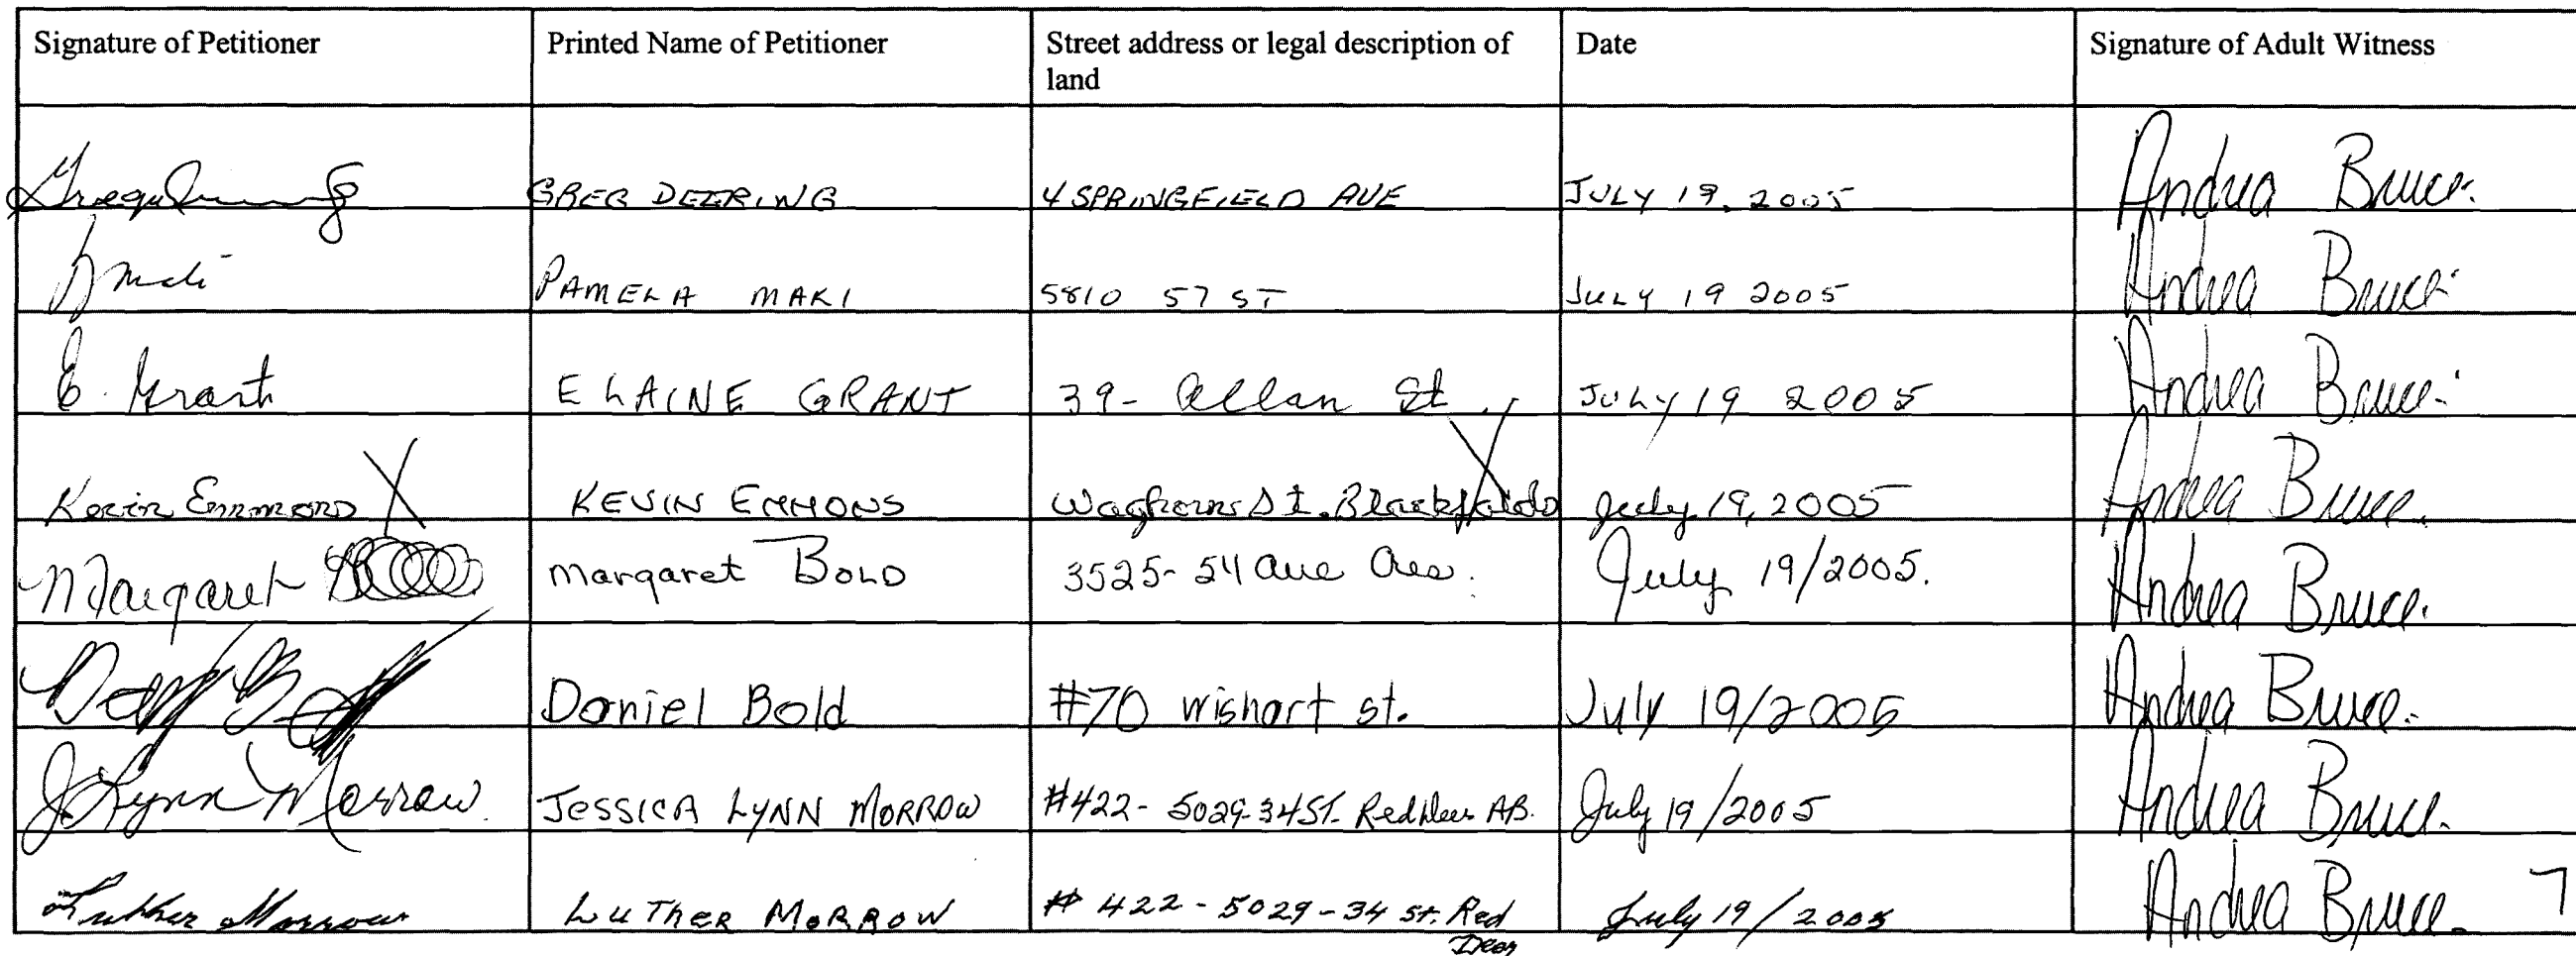 Signature of Petitioner Printed Name of Petitioner Street address or legal description of land Date Signature of Adult Witness
GREG DEERING 4 SPRINGFIELD AVE JULY 19, 2005 Andrea Bruce.
PAMELA MAKI 5810 57 ST JULY 19 2005 Andrea Bruce.
E. Grant ELAINE GRANT 39- Allan St. JULY 19 2005 Andrea Bruce.
Kevin Emmons KEVIN EMMONS Waghorn St. Blackfalds July 19, 2005 Andrea Bruce.
Margaret Margaret BOLD 3525-54 ave July 19/2005. Andrea Bruce.
Daniel Bold #70 wishart st. July 19/2005 Andrea Bruce.
J Lynn Morrow. JESSICA LYNN MORROW #422- 5029-34 ST. Red Deer AB. July 19/2005 Andrea Bruce.
Luther Morrow LUTHER MORROW # 422-5029-34 st. Red July 19/2005 Andrea Bruce. 7
Deer